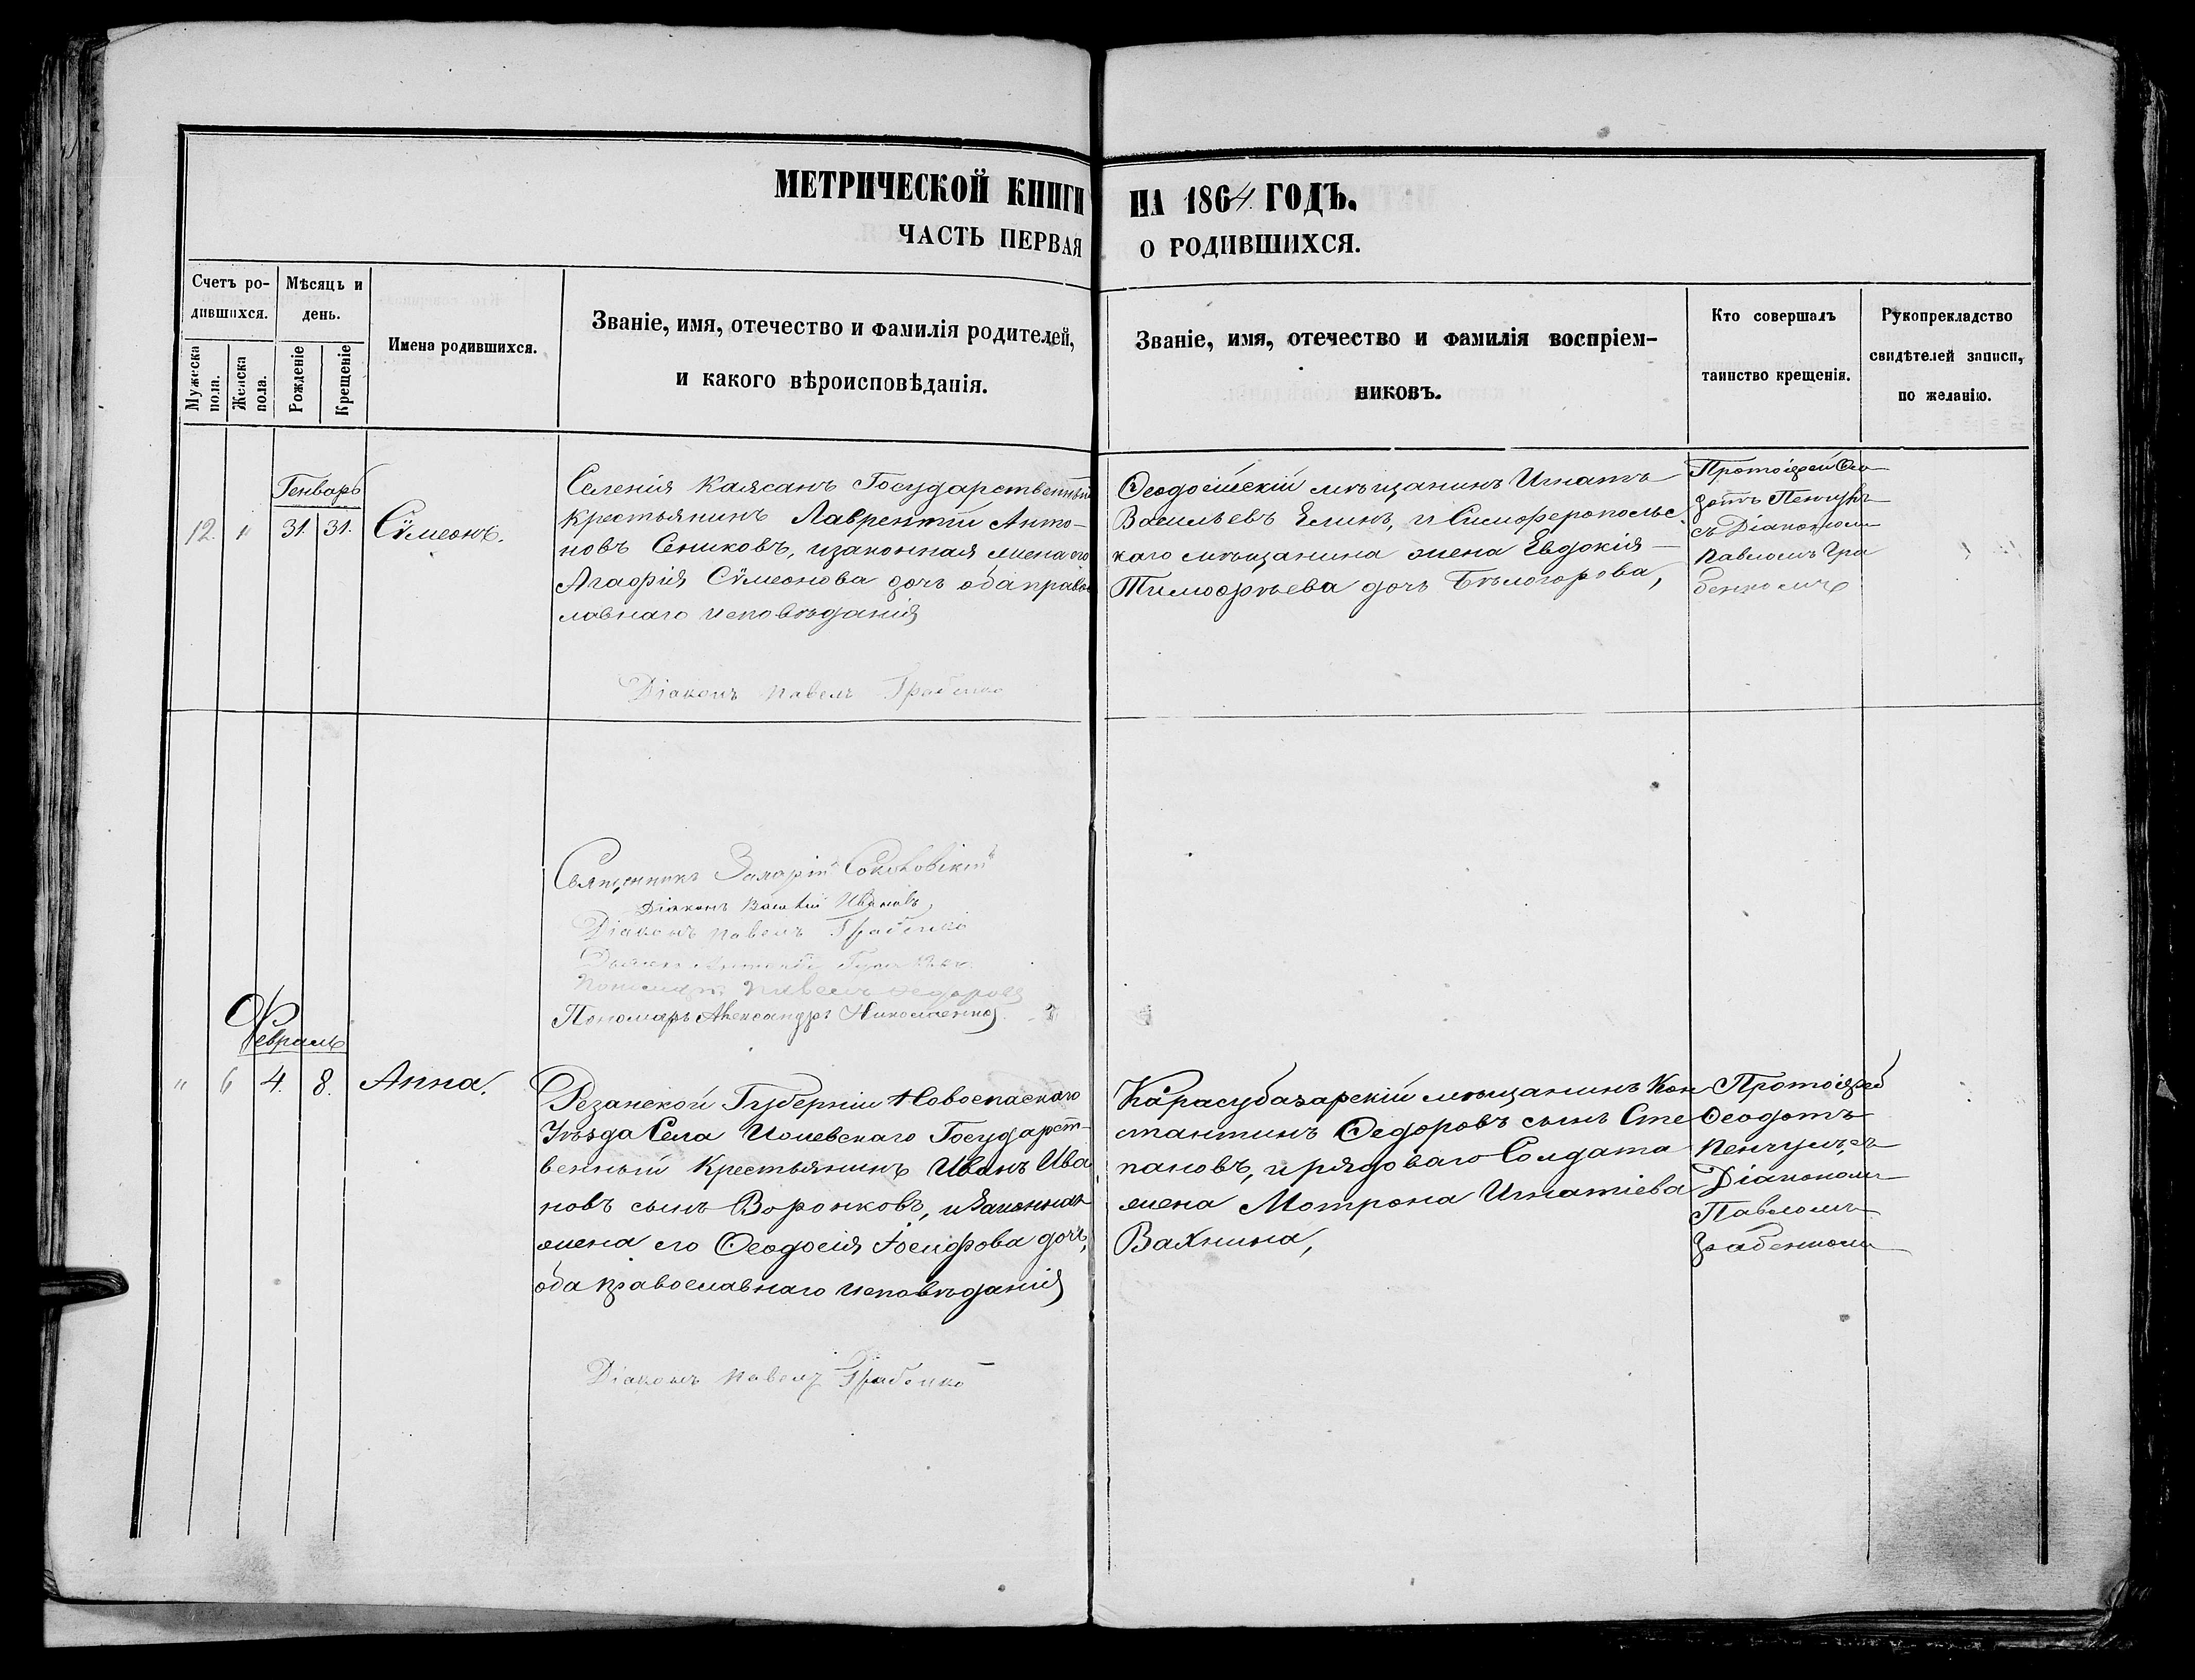 МЕТРИЧЕСКОЙ КНИГИ НА 1864 ГОДЪ.
ЧАСТЬ ПЕРВАЯ О РОДИВШИХСЯ.
Счетъ ро-
дившихся.
Мужеска
пола.
Женска
пола.
Мѣсяцъ и
день.
Рожденіе
Крещеніе
Имена родившихся.
Званіе, имя, отечество и фамилія родителей,
и какого вѣроисповѣданія.
Званіе, имя, отечество и фамилія воспріем-
никовъ.
Кто совершалъ
таинство крещенія.
Рукопрекладство
свидѣтелей записи,
по желанію.
Генварь
12. " 31. 31. Сѵмеонъ.
Селенія Каясанъ Государственный
крестьянинъ Лаврентій Анто-
новъ Сениковъ, и законная жена его
Агафія Сѵмеонова дочь оба право
лавнаго исповѣданія
Діаконъ Павелъ Грабенко
Ѳеодосійскій мѣщанинъ Игнатъ
Васильевъ Елинъ, и Симферопольс
каго мѣщанина жена Евдокія
Тимофѣева дочь Бѣлогорова,
Протоіерей Ѳео
дотъ Пенчулъ
съ Діакономъ
Павломъ Гра
бенкомъ
Священникъ Захарій Соколовскій
Діаконъ Василій Ивановъ,
Діаконъ Павелъ Грабенко
Павелъ Федоровъ
Пономарь Александръ Николаенко
Февраль
" 6 4. 8. Анна.
Резанской Губерніи Новоспаскаго
Уѣзда Села Государст-
венный Крестьянинъ Иванъ Ива
новъ сынъ Воронковъ, и Законная
жена его Ѳеодосія Іосифова дочь,
оба православнаго исповѣданія
Діаконъ Павелъ Грабенко
Карасубазарскій мѣщанинъ Кон
стантинъ Ѳедоровъ сынъ Сте
пановъ, и рядоваго Солдата
жена Мотрона Игнатіева
Вахнина,
Протоіерей
Ѳеодотъ
Пенчулъ, съ
Діакономъ
Павломъ
Грабенкомъ